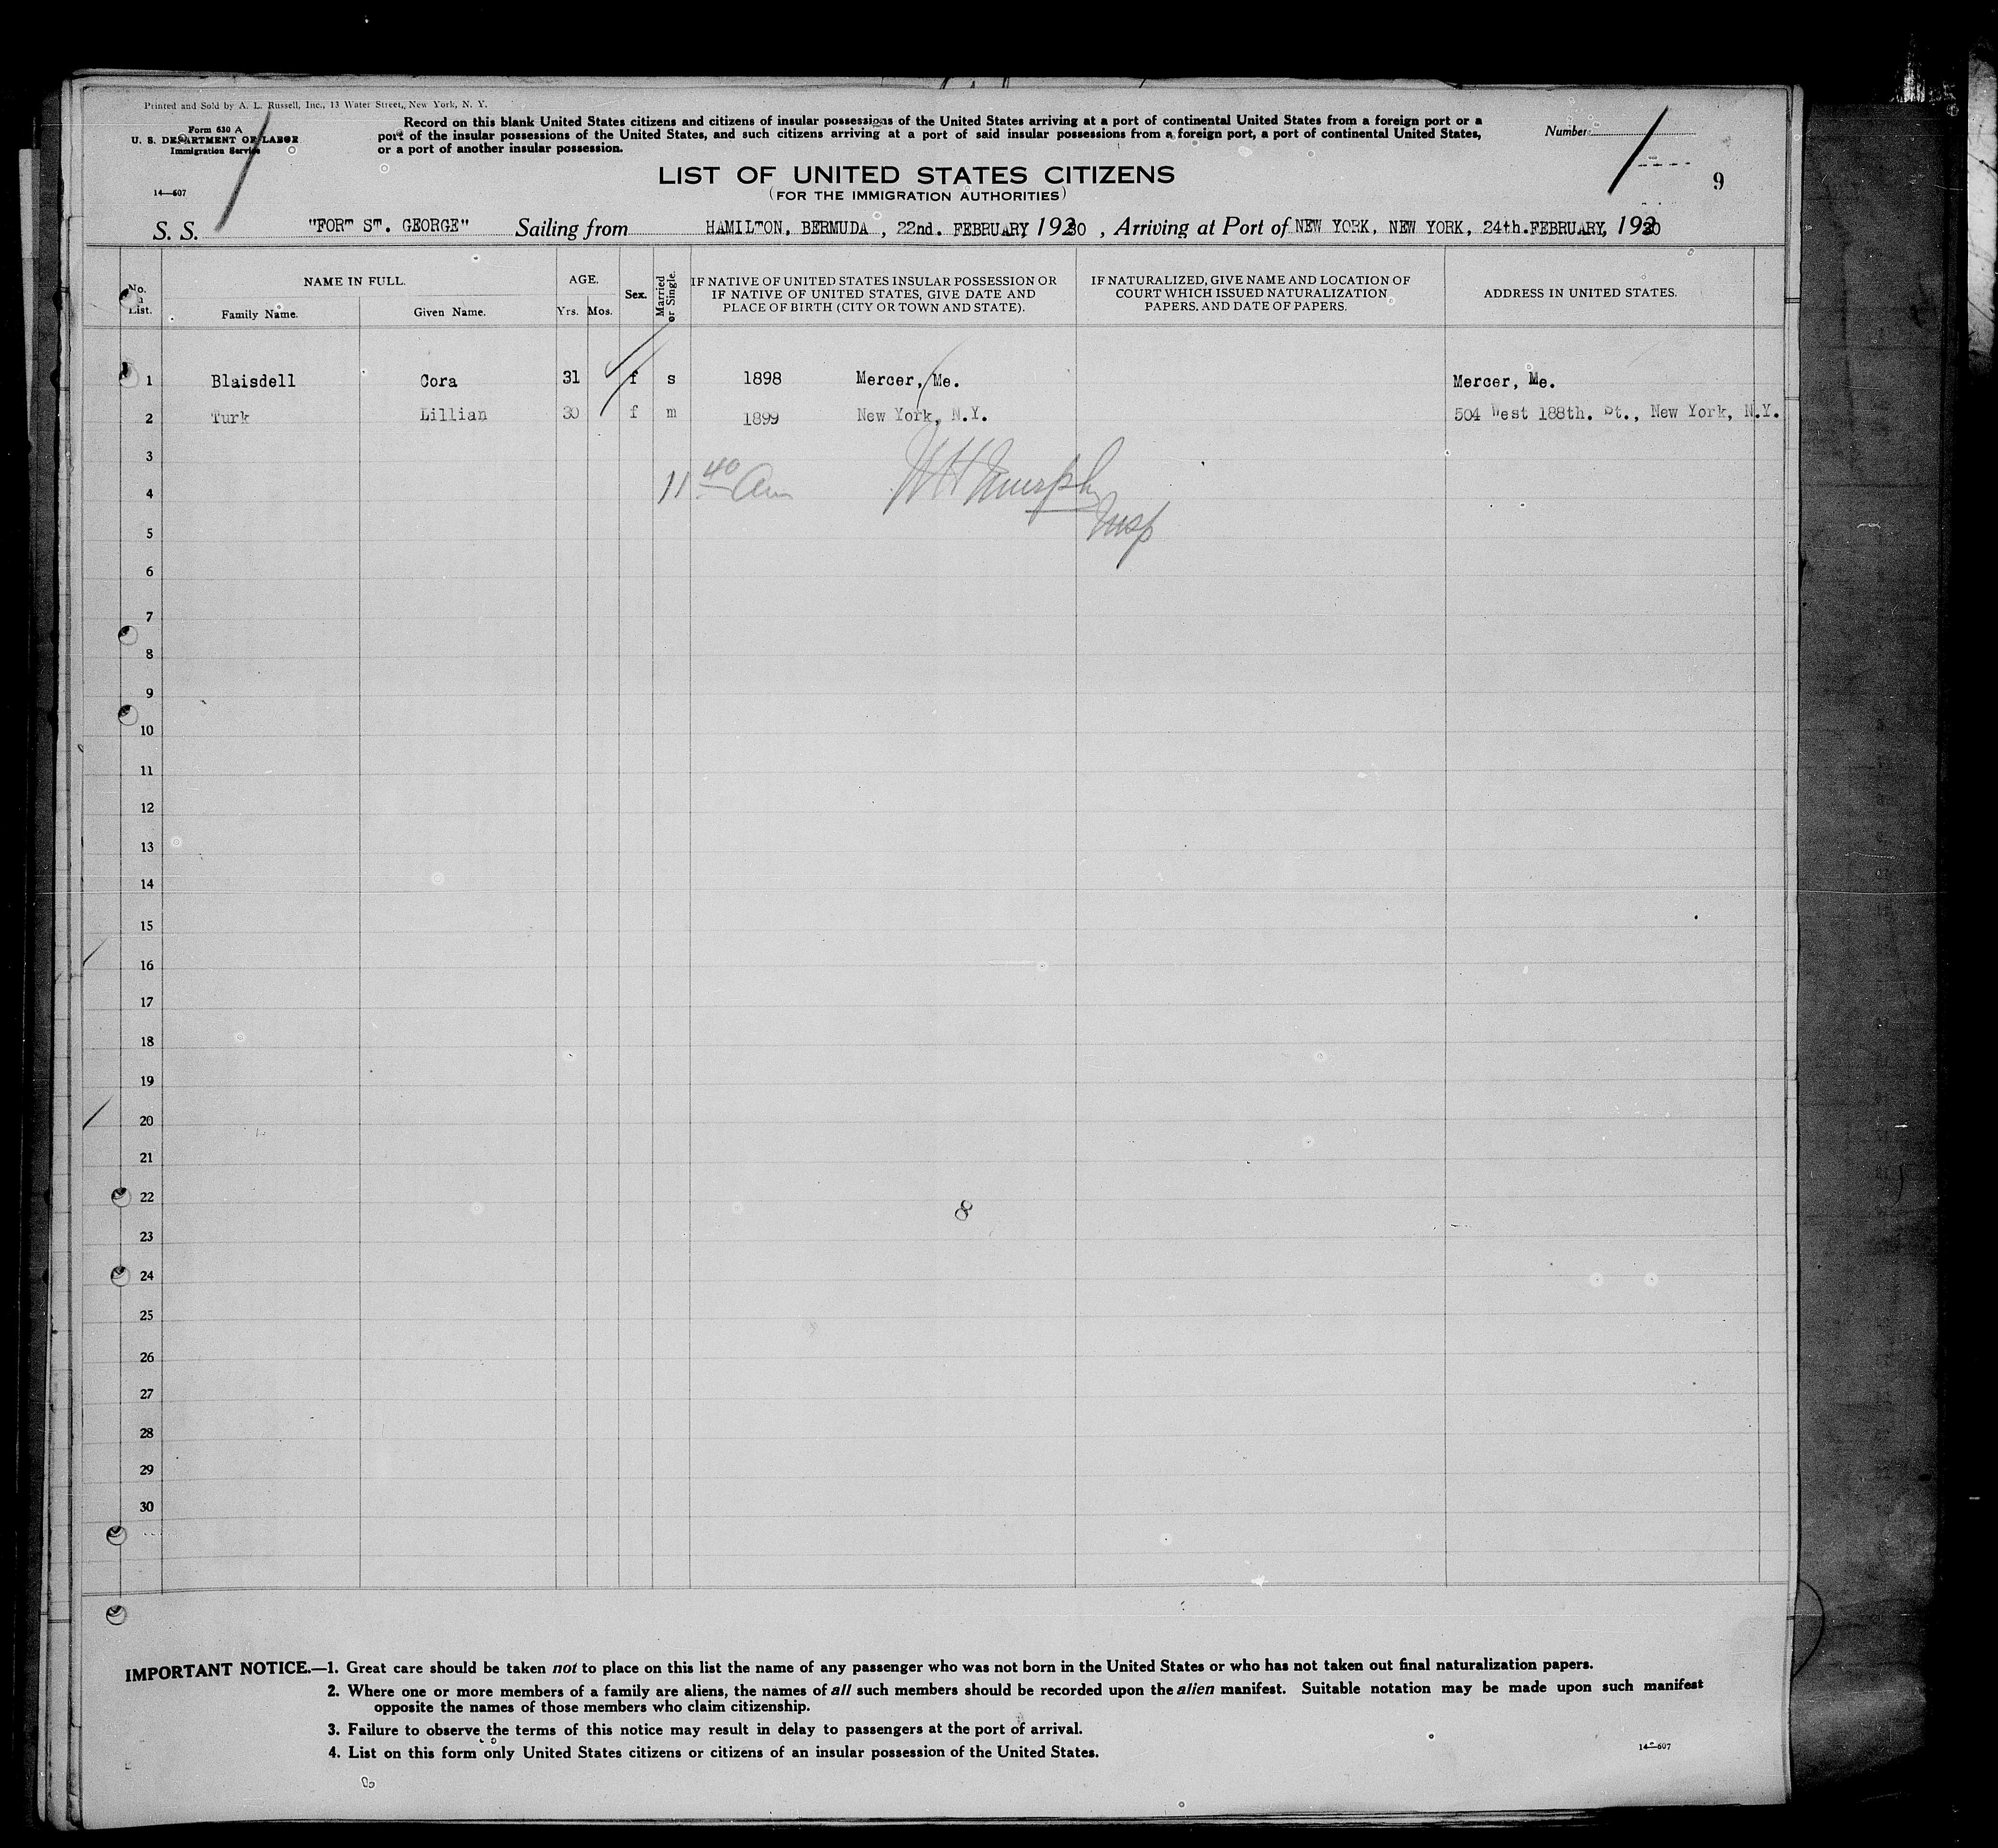 Printed and Sold by A. L. Russell, Inc., 13 Water Street, New York, N. Y.
Form 630 A
U. S. DEPARTMENT OF LABOR
Immigration Service
14—607
Record on this blank United States citizens and citizens of insular possessions of the United States arriving at a port of continental United States from a foreign port or a
port of the insular possessions of the United States, and such citizens arriving at a port of said insular possessions from a foreign port, a port of continental United States,
or a port of another insular possession.
Number
9
LIST OF UNITED STATES CITIZENS
(FOR THE IMMIGRATION AUTHORITIES)
S. S. "FORT ST. GEORGE" Sailing from HAMILTON, BERMUDA, 22nd. FEBRUARY, 1930, Arriving at Port of NEW YORK, NEW YORK, 24th. FEBRUARY, 1930
No. in List.
NAME IN FULL.
Family Name. Given Name.
AGE.
Yrs. Mos.
Sex.
Married or Single.
IF NATIVE OF UNITED STATES INSULAR POSSESSION OR
IF NATIVE OF UNITED STATES, GIVE DATE AND
PLACE OF BIRTH (CITY OR TOWN AND STATE).
IF NATURALIZED, GIVE NAME AND LOCATION OF
COURT WHICH ISSUED NATURALIZATION
PAPERS, AND DATE OF PAPERS.
ADDRESS IN UNITED STATES.
1 Blaisdell Cora 31 f s 1898 Mercer, Me. Mercer, Me.
2 Turk Lillian 30 f m 1899 New York, N.Y. 504 West 188th. St., New York, N.Y.
3
4 11 40 Am W H Murphy
5 Insp
6
7
8
9
10
11
12
13
14
15
16
17
18
19
20
21
22
8
23
24
25
26
27
28
29
30
IMPORTANT NOTICE.—1. Great care should be taken not to place on this list the name of any passenger who was not born in the United States or who has not taken out final naturalization papers.
2. Where one or more members of a family are aliens, the names of all such members should be recorded upon the alien manifest. Suitable notation may be made upon such manifest
opposite the names of those members who claim citizenship.
3. Failure to observe the terms of this notice may result in delay to passengers at the port of arrival.
4. List on this form only United States citizens or citizens of an insular possession of the United States.
14—607